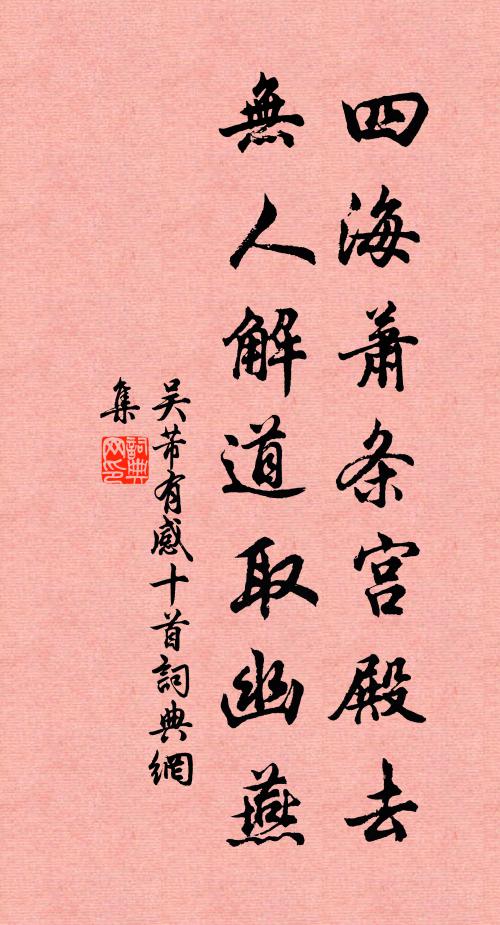 四海蕭条宫殿去
無人解道取幽燕
吴芾有感十首詞典網
集
詞典网印